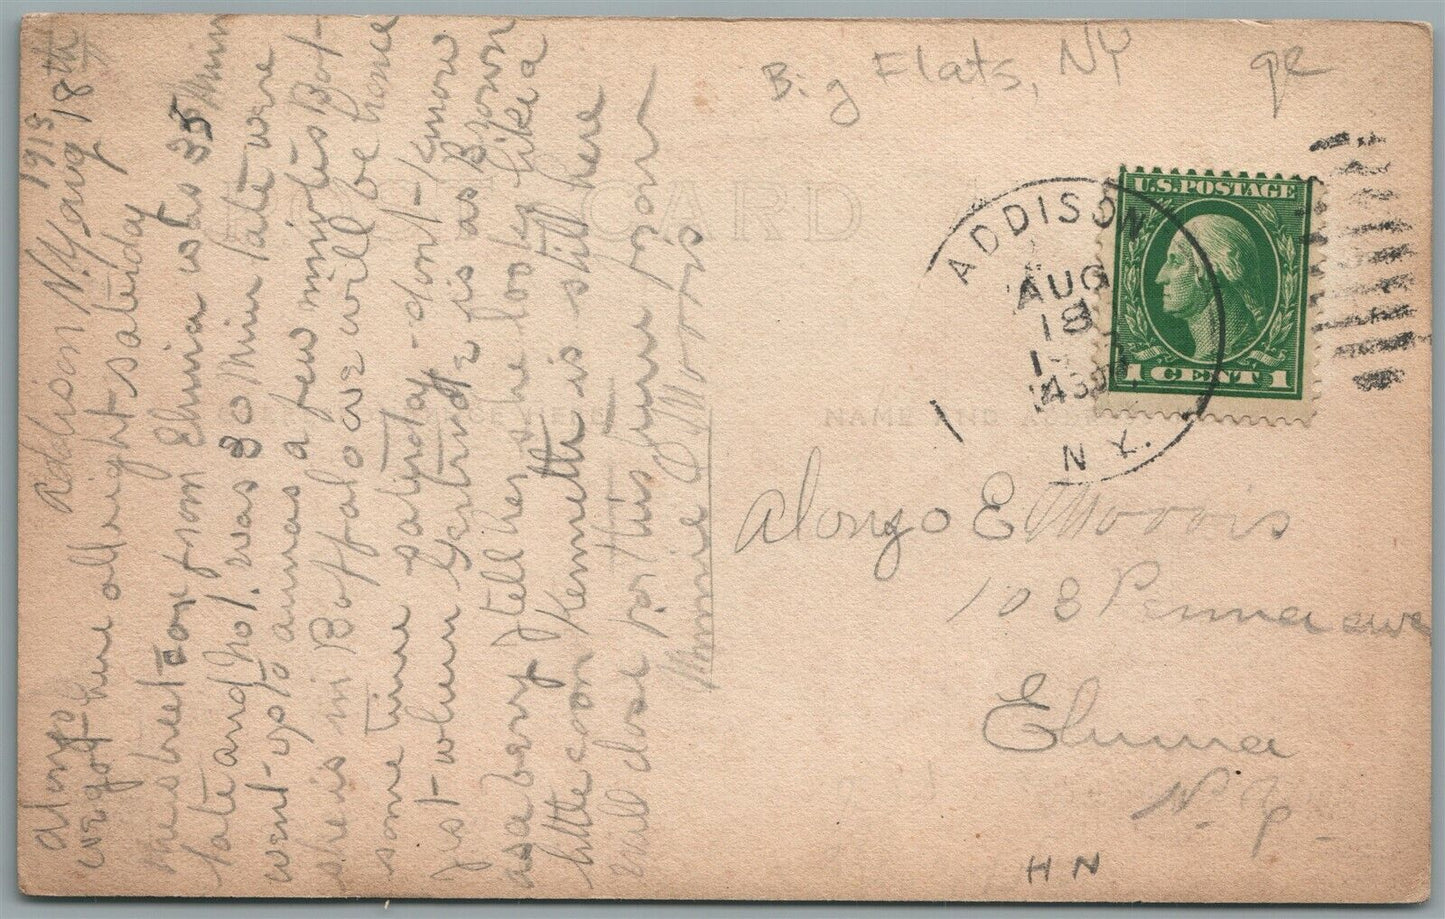 1913
Addison N.Y aug 18th
Alonzo
we got here all right saturday
our street car from Elmira was 35 Min
late and No 1. was 30 Min late were
went up to annas a few minutes Bot
she is in Buffalo ove will be home
some time saturday dont know
Just when Gertrude is as Brown
as a bery I tell her she looks like a
little coon Kenneth is still here
will close for this time from
Minnie Morris
Big Flats, NY
qe
CARD
U.S. POSTAGE
1 CENT 1
ADDISON
AUG
18
N.Y.
NAME AND
Alonzo E Morris
108 Penna ave
Elmira
N. Y.
HN